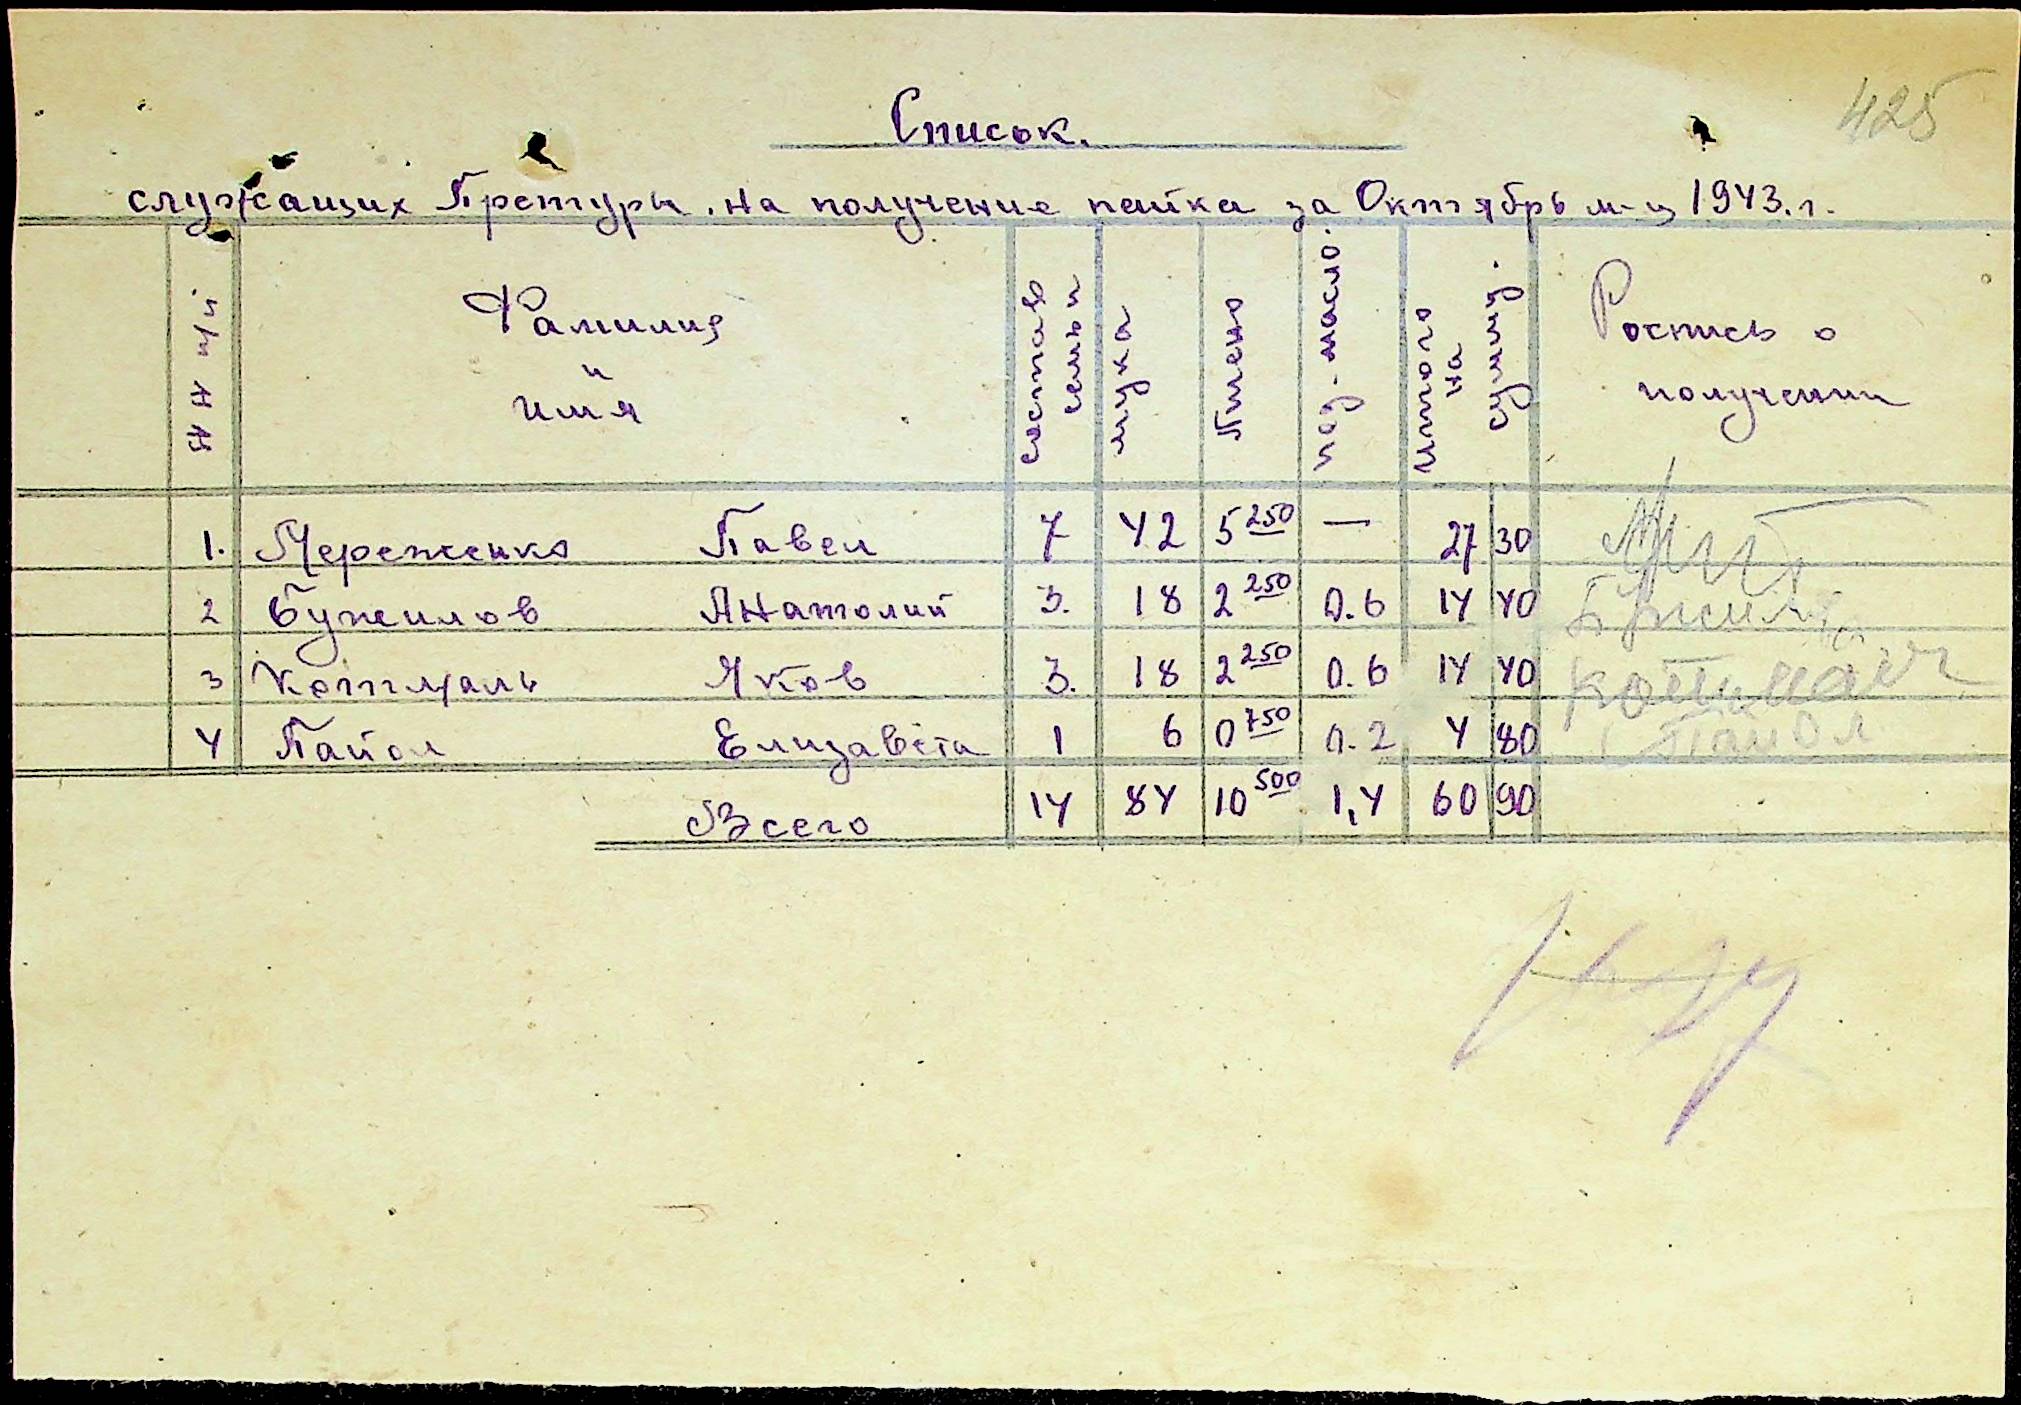 425
Список.
служащих Претуры. на получение пайка за Октябрь м-ц 1943.г.
Н Н п/п.
Фамилия
и
имя
состав
семьи
мука
Пшено
под-масло.
итого
на
сумму.
Роспись о
получении
1. Мереженко Павел 7 42 5 250 — 27 30
2 Бужилов Анатолий 3. 18 2 250 0.6 14 40
3 Котляль Яков 3. 18 2 250 0.6 14 40
4 Пайол Елизавета 1 6 0 750 0.2 4 80 Пайол
Всего 14 84 10 500 1,4 60 90